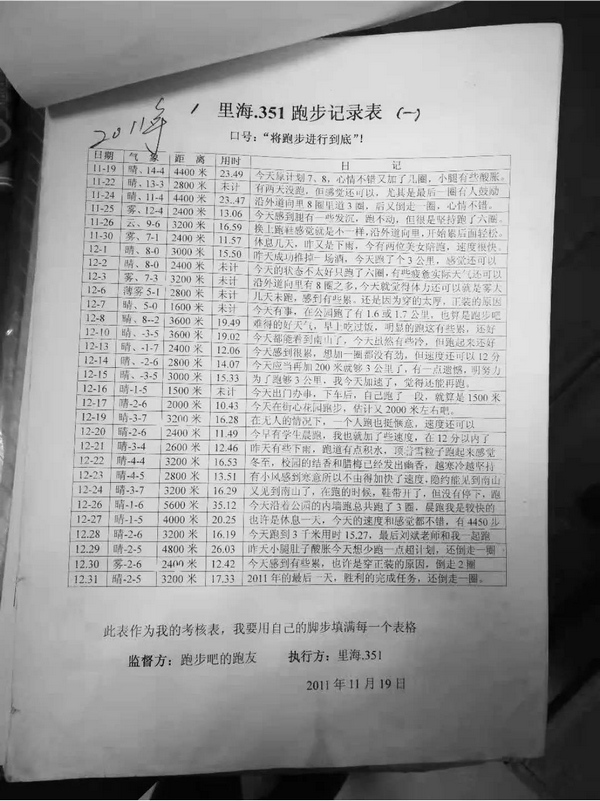 2011年
里海.351 跑步记录表 (一)
口号：“将跑步进行到底”！
日期 气 象 距 离 用时 日 记
11-19 晴、14-4 4400 米 23.49 今天原计划 7、8，心情不错又加了几圈，小腿有些酸胀。
11-22 晴、13-3 2800 米 未计 有两天没跑，但感觉还可以，尤其是最后一圈有人鼓动
11-24 晴、11-4 4400 米 23..47 沿外道向里 8 圈里道 3 圈，后又倒走一圈，心情不错。
11-25 雾、12-4 2400 米 13.06 今天感到腿有一些发沉，跑不动，但很是坚持跑了六圈。
11-26 云、9-6 3200 米 16.59 换上跑鞋感觉就是不一样，沿外道向里,开始累后面轻松。
11-30 雾、7-1 2400 米 11.57 休息几天，昨又是下雨，今有两位美女陪跑，速度很快。
12-1 晴、8-0 3000 米 15.50 昨天成功推掉一场酒，今天跑了个 3 公里，感觉还可以
12-2 晴、8-0 2400 米 未计 今天的状态不太好只跑了六圈，有些疲惫实际天气还可以
12-3 雾、7-3 3200 米 未计 沿外道向里有 8 圈之多，今天就觉得体力还可以就是雾大
12-6 薄雾 5-1 2800 米 未计 几天未跑，感到有些累，还是因为穿的太厚，正装的原因
12-7 晴、5-0 1600 米 未计 今天有事，在公园跑了有 1.6 或 1.7 公里，也算是跑步吧
12-8 晴、8--2 3600 米 19.49 难得的好天气，早上吃过饭，明显的跑这有些累，还好
12-10 晴、-3-5 3600 米 19.02 今天都能看到南山了，今天虽然有些冷，但跑起来还好
12-13 晴、-1-7 2400 米 12.06 今天感到很累，想加一圈都没有劲，但速度还可以 12 分
12-14 晴、-2-6 2800 米 14.07 今天应当再加 200 米就够 3 公里了，有一点遗憾，明努力
12-15 晴、-3-5 3000 米 15.33 为了跑够 3 公里，我今天加速了，觉得还能再跑。
12-16 晴-1-5 1500 米 未计 今天出门办事，下车后，自己跑了一段，就算是 1500 米
12-17 晴-2-6 2000 米 10.43 今天在街心花园跑步，估计又 2000 米左右吧。
12-19 晴-3-7 3200 米 16.28 在无人的情况下，一个人跑也挺惬意，速度还可以
12-20 晴-2-6 2400 米 11.49 今早有学生晨跑，我也就加了些速度，在 12 分以内了
12-21 晴-3-4 2600 米 12.46 昨天有些下雨，跑道有点积水，顶着雪粒子跑起来感觉
12-22 晴-4-4 3200 米 16.53 冬至，校园的结香和腊梅已经发出幽香，越寒冷越坚持
12-23 晴-4-5 2800 米 13.51 有小风感到寒意所以不由得加快了速度,隐约能见到南山
12-24 晴-3-7 3200 米 16.29 又见到南山了，在跑的时候，鞋带开了，但没有停下，跑
12-26 晴-1-6 5600 米 35.12 今天沿着公园的内墙跑总共跑了 3 圈，晨跑我是较快的
12-27 晴-1-5 4000 米 20.25 也许是休息一天，今天的速度和感觉都不错，有 4450 步
12.28 晴-2-6 3200 米 16.19 今天跑到 3 千米用时 15.27，最后刘斌老师和我一起跑
12.29 晴-2-5 4800 米 26.03 昨天小腿肚子酸胀今天想少跑一点超计划，还倒走一圈
12.30 雾-2-6 2400 米 12.42 今天感到有些累，也许是穿正装的原因，倒走 2 圈
12.31 晴-2-5 3200 米 17.33 2011 年的最后一天，胜利的完成任务，还倒走一圈。
此表作为我的考核表，我要用自己的脚步填满每一个表格
监督方：跑步吧的跑友 执行方：里海.351
2011 年 11 月 19 日